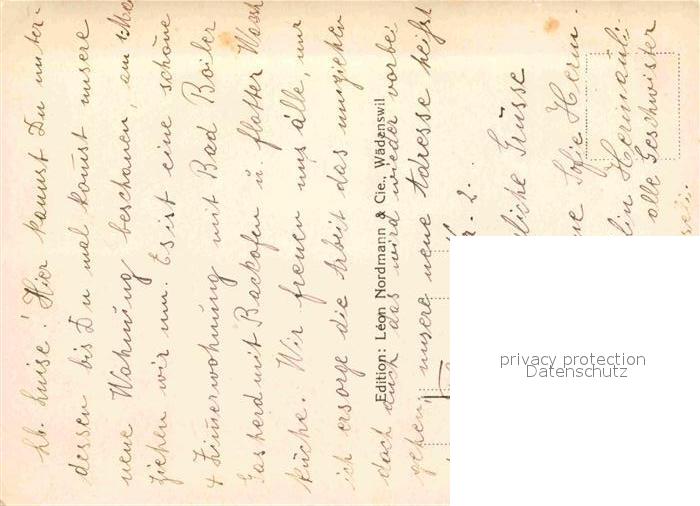 Lb. Luise! Hier kannst Du unter-
dessen bis Du mal kommst unsere
neue Wohnung beschauen, am
ziehen wir um. Es ist eine schöne
4 Zimmerwohnung mit Bad Boiler
Gasherd mit Backofen u. flotter Wasch
küche. Wir freuen uns alle, nur
ich ersorge die Arbeit das umziehen
doch auch das wird wieder vorbei
gehen, unsere neue Adresse heißt
2.
liche Grüsse
Sofie Herm.
Hermanli
alle Geschwister
Edition: Léon Nordmann & Cie., Wädenswil
privacy protection
Datenschutz